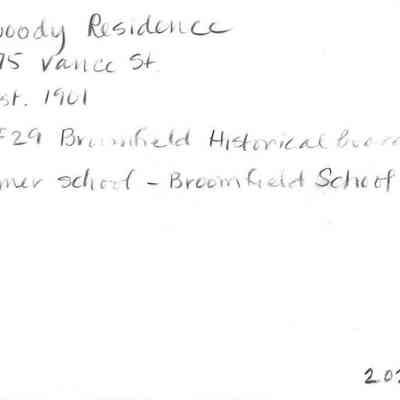 woody Residence
75 Vance St.
st. 1901
F29 Broomfield Historical board
mer school - Broomfield School
202